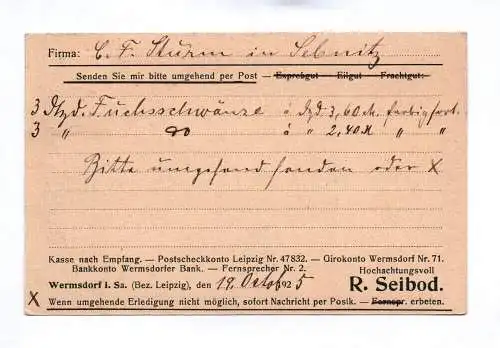 Firma: C. F. Sturm in Sebnitz
Senden Sie mir bitte umgehend per Post — Expreßgut — Eilgut — Frachtgut:
3 Dtzd. Fuchsschwänze á Dzd 3,60 M. farbig sort.
3 " do á " 2,40 M " "
Bitte umgehend senden oder X
Kasse nach Empfang. — Postscheckkonto Leipzig Nr. 47832. — Girokonto Wermsdorf Nr. 71.
Bankkonto Wermsdorfer Bank. — Fernsprecher Nr. 2.
Hochachtungsvoll
Wermsdorf i. Sa. (Bez. Leipzig), den 19. Octob 1925
R. Seibod.
X Wenn umgehende Erledigung nicht möglich, sofort Nachricht per Postk. — Fernspr. erbeten.